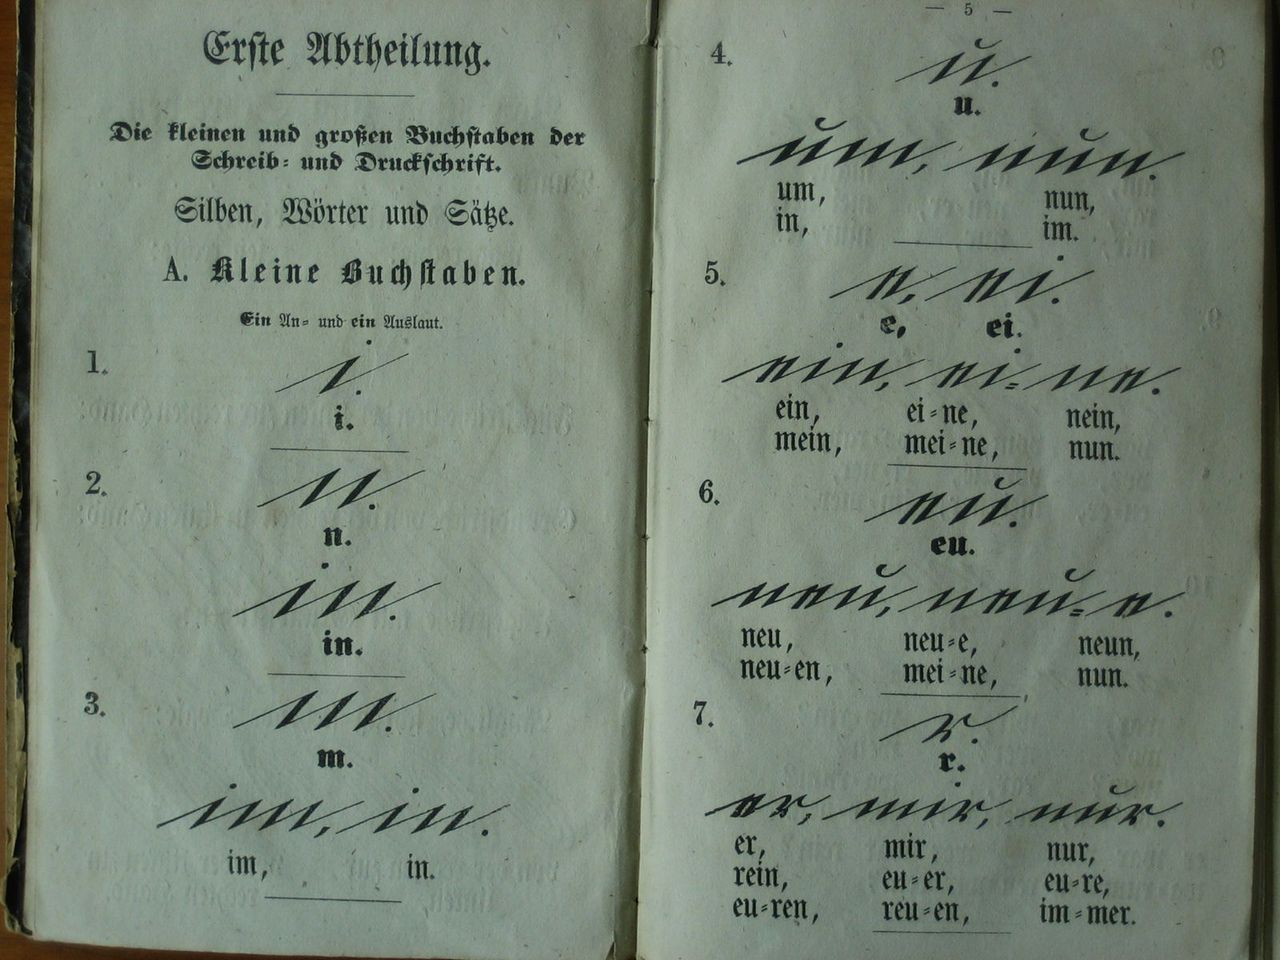 Erste Abtheilung.
Die kleinen und großen Buchstaben der
Schreib= und Druckschrift.
Silben, Wörter und Sätze.
A. Kleine Buchstaben.
Ein An= und ein Auslaut.
1. i.
i.
2. n.
n.
in.
in.
3. m.
m.
im, in.
im, in.
— 5 —
4. u.
u.
um, nun.
um, nun,
in, im.
5. e, ei.
e, ei.
ein, ei=ne.
ein, ei=ne, nein,
mein, mei=ne, nun.
6. eu.
eu.
neu, neu=e.
neu, neu=e, neun,
neu=en, mei=ne, nun.
7. r.
r.
er, mir, nur.
er, mir, nur,
rein, eu=er, eu=re,
eu=ren, reu=en, im=mer.